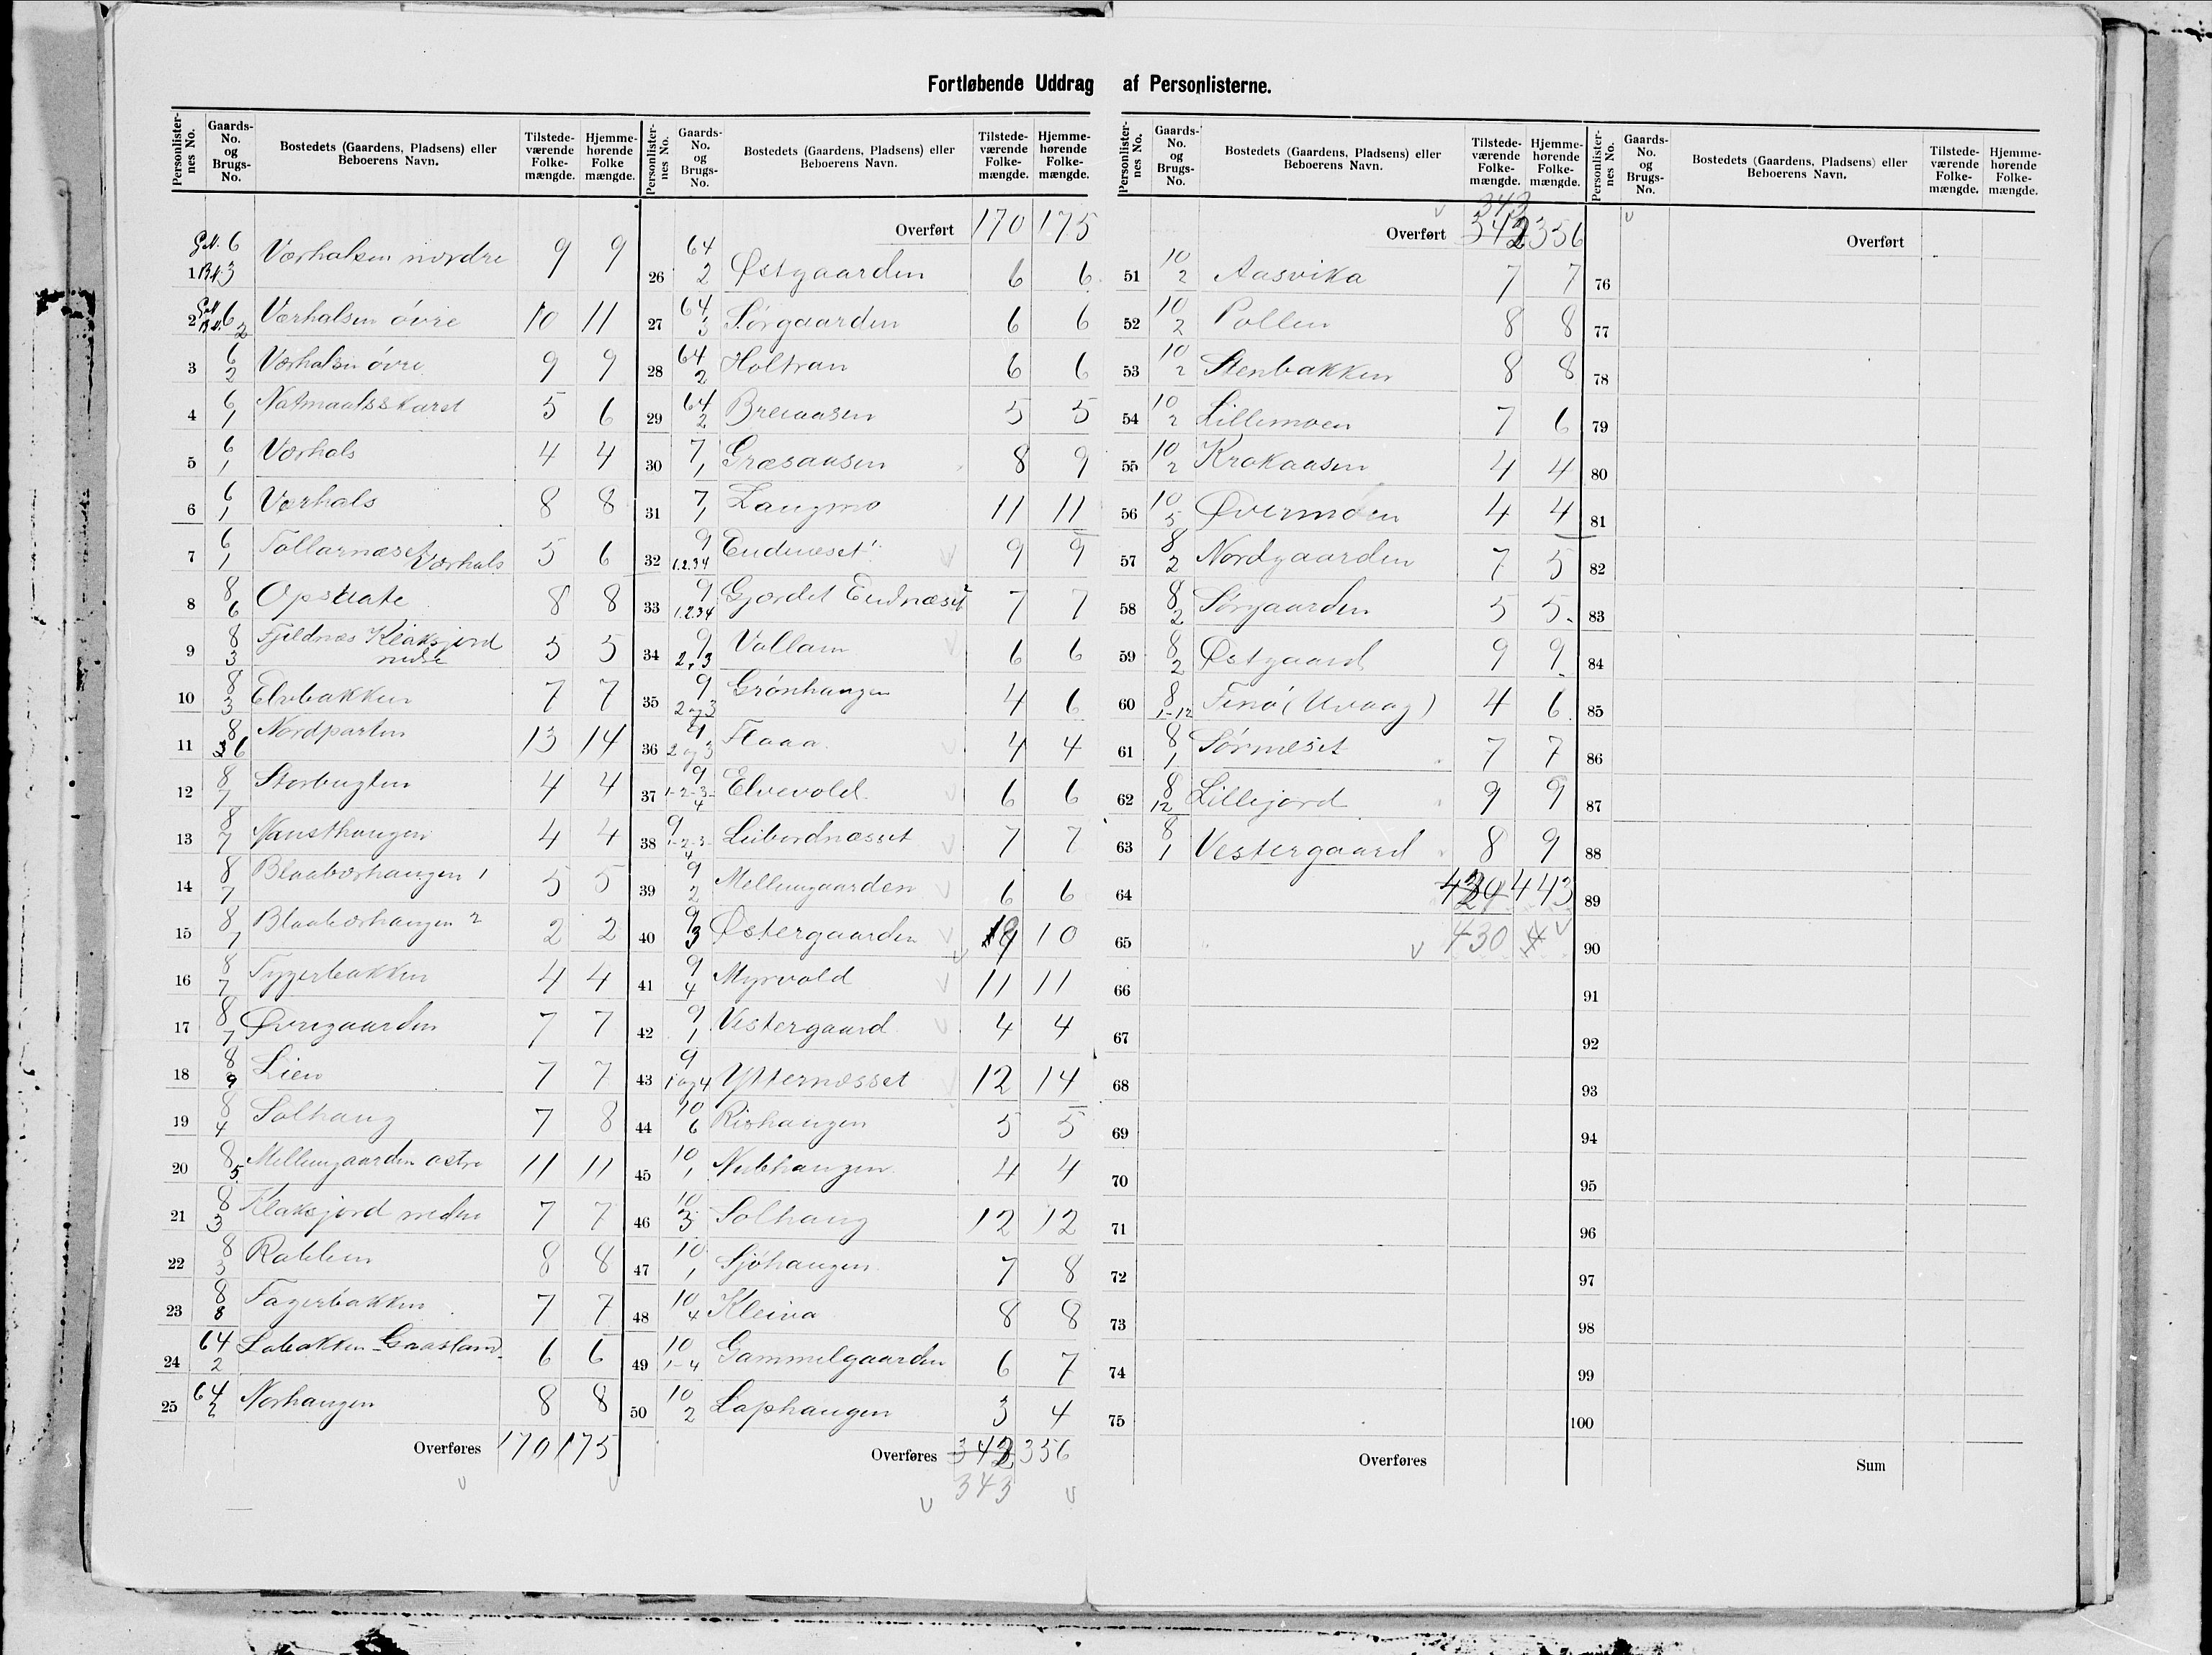 Fortløbende Uddrag af Personlisterne.
Personlister-nes No. Gaards-No. og Brugs-No. Bostedets (Gaardens, Pladsens) eller Beboerens Navn. Tilstede-værende Folke-mængde. Hjemme-hørende Folke mængde.
G.N. 6
1 B.N. 3 Værhalsen nordre 9 9
2 G.N. 6 B.N. 2 Værhalsen övre 10 11
3 6 2 Værhalsen övre 9 9
4 6 1 Natmaalsskaret 5 6
5 6 1 Værhals 4 4
6 6 1 Værhals 8 8
7 6 1 Tollarnæset Værhals 5 6
8 8 6 Opstate 8 8
9 8 3 Fjeldnes Klaksjord nedre 5 5
10 8 3 Elvbakken 7 7
11 8 36 Nordparten 13 14
12 8 7 Storbugten 4 4
13 8 7 Nausthaugen 4 4
14 8 7 Blaabærhaugen 1 5 5
15 8 7 Blaabærhaugen 2 2 2
16 8 7 Tygerbakken 4 4
17 8 7 Øvregaarden 7 7
18 8 9 Lien 7 7
19 8 4 Solhaug 7 8
20 8 5 Mellemgaarden østre 11 11
21 8 3 Klaksjord nedre 7 7
22 8 3 Rabben 8 8
23 8 8 Fagerbakken 7 7
24 64 2 Labakken Gaasland 6 6
25 64 2 Norhaugen 8 8
Overføres 170 175
Personlister-nes No. Gaards-No. og Brugs-No. Bostedets (Gaardens, Pladsens) eller Beboerens Navn. Tilstede-værende Folke-mængde. Hjemme-hørende Folke-mængde.
Overført 170 175
26 64 2 Østgaarden 6 6
27 64 3 Sørgaarden 6 6
28 64 2 Holtran 6 6
29 64 2 Breiaasen 5 5
30 7 1 Græsaasen 8 9
31 7 1 Langmo 11 11
32 9 1.2.3.4 Eidnæset 1 9 9
33 9 1.2.3.4 Gjærdet Eidnæset 2 7 7
34 9 2,3 Vollan 6 6
35 9 2 og 3 Grönhaugen 4 6
36 9 2 og 3 Flaaa 4 4
37 9 1-2-3-4 Elvevold 6 6
38 9 1-2-3-4 Leibordnæsset 7 7
39 9 2 Mellemgaarden 6 6
40 9 3 Østergaarden 9 10
41 9 4 Myrvold 11 11
42 9 1 Vestergaard 4 4
43 9 1 og 4 Ytternæsset 12 14
44 10 6 Rishaugen 5 5
45 10 1 Nubhaugen 4 4
46 10 3 Solhaug 12 12
47 10 1 Sjöhaugen 7 8
48 10 4 Kleiva 8 8
49 10 1-4 Gammelgaarden 6 7
50 10 2 Laphaugen 3 4
Overføres 342 356
343
Personlister-nes No. Gaards-No. og Brugs-No. Bostedets (Gaardens, Pladsens) eller Beboerens Navn. Tilstede-værende Folke-mængde. Hjemme-hørende Folke-mængde.
343
Overført 342 356
51 10 2 Aasvika 7 7
52 10 2 Pollen 8 8
53 10 2 Stenbakken 8 8
54 10 2 Lillemoen 7 6
55 10 2 Krokaasen 4 4
56 10 5 Øvermoen 4 4
57 8 2 Nordgaarden 7 5
58 8 2 Sørgaarden 5 5
59 8 2 Østgaard 9 9
60 8 1-12 Finö (Uvaag) 4 6
61 8 1 Sörneset 7 7
62 8 12 Lillejord 9 9
63 8 1 Vestergaard 8 9
64 429 443
65 430
66
67
68
69
70
71
72
73
74
75
Overføres
Personlister-nes No. Gaards-No. og Brugs-No. Bostedets (Gaardens, Pladsens) eller Beboerens Navn. Tilstede-værende Folke-mængde. Hjemme-hørende Folke-mængde.
Overført
76
77
78
79
80
81
82
83
84
85
86
87
88
89
90
91
92
93
94
95
96
97
98
99
100
Sum